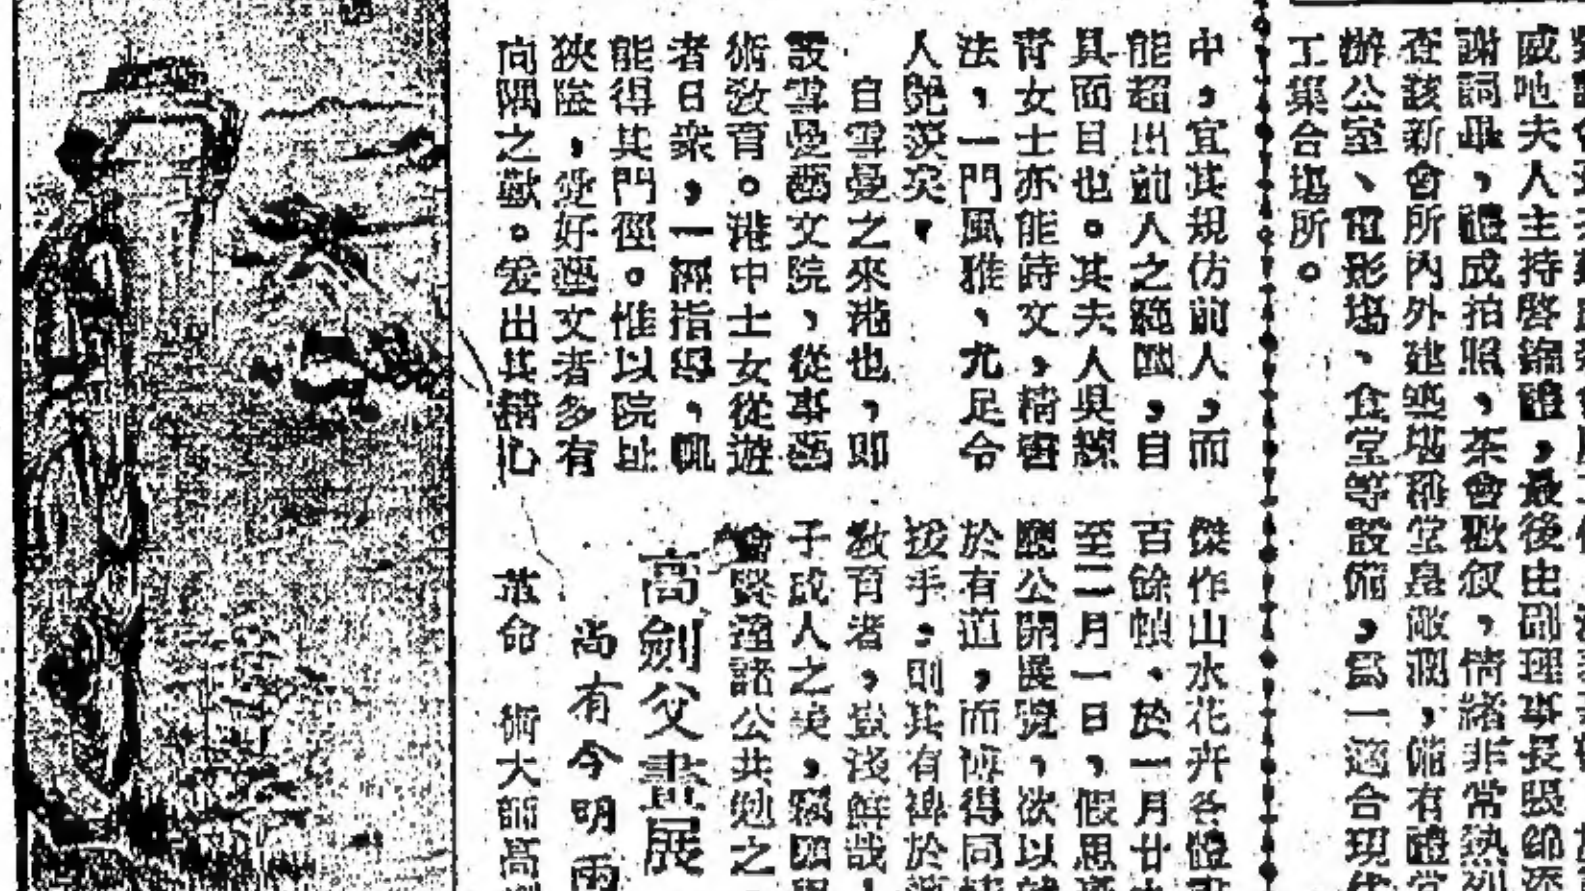 威地夫人主持啓鑰禮，最後由副理事長張
謝詞畢，禮成拍照，茶會歡叙，情緒非常熱烈
查該新會所內外建築堪稱堂皇敞濶，備有禮堂
辦公室、電影塲、食堂等設備，爲一適合現代
工集合塲所。
中，宜其規仿前人，而
能超出前人之範圍，自
具面目也。其夫人吳
青女士亦能詩文，精書
法，一門風雅，尤足令
人艷羨矣。
自雪曼之來港也，即
設雪曼藝文院，從事藝
術敎育。港中士女從遊
者日衆，一經指導，輒
能得其門徑。惟以院址
狹隘，愛好藝文者多有
向隅之歎。爰出其精心
傑作山水花卉各體
百餘幀，於一月廿
至二月一日，假思
廳公開展覽，欲以
於有道，而博得同
援手，則其有裨於
敎育者，豈淺鮮哉，
子成人之美，
賢達諸公共勉之
高劍父畫展
尚有今明兩
革命 術大師高